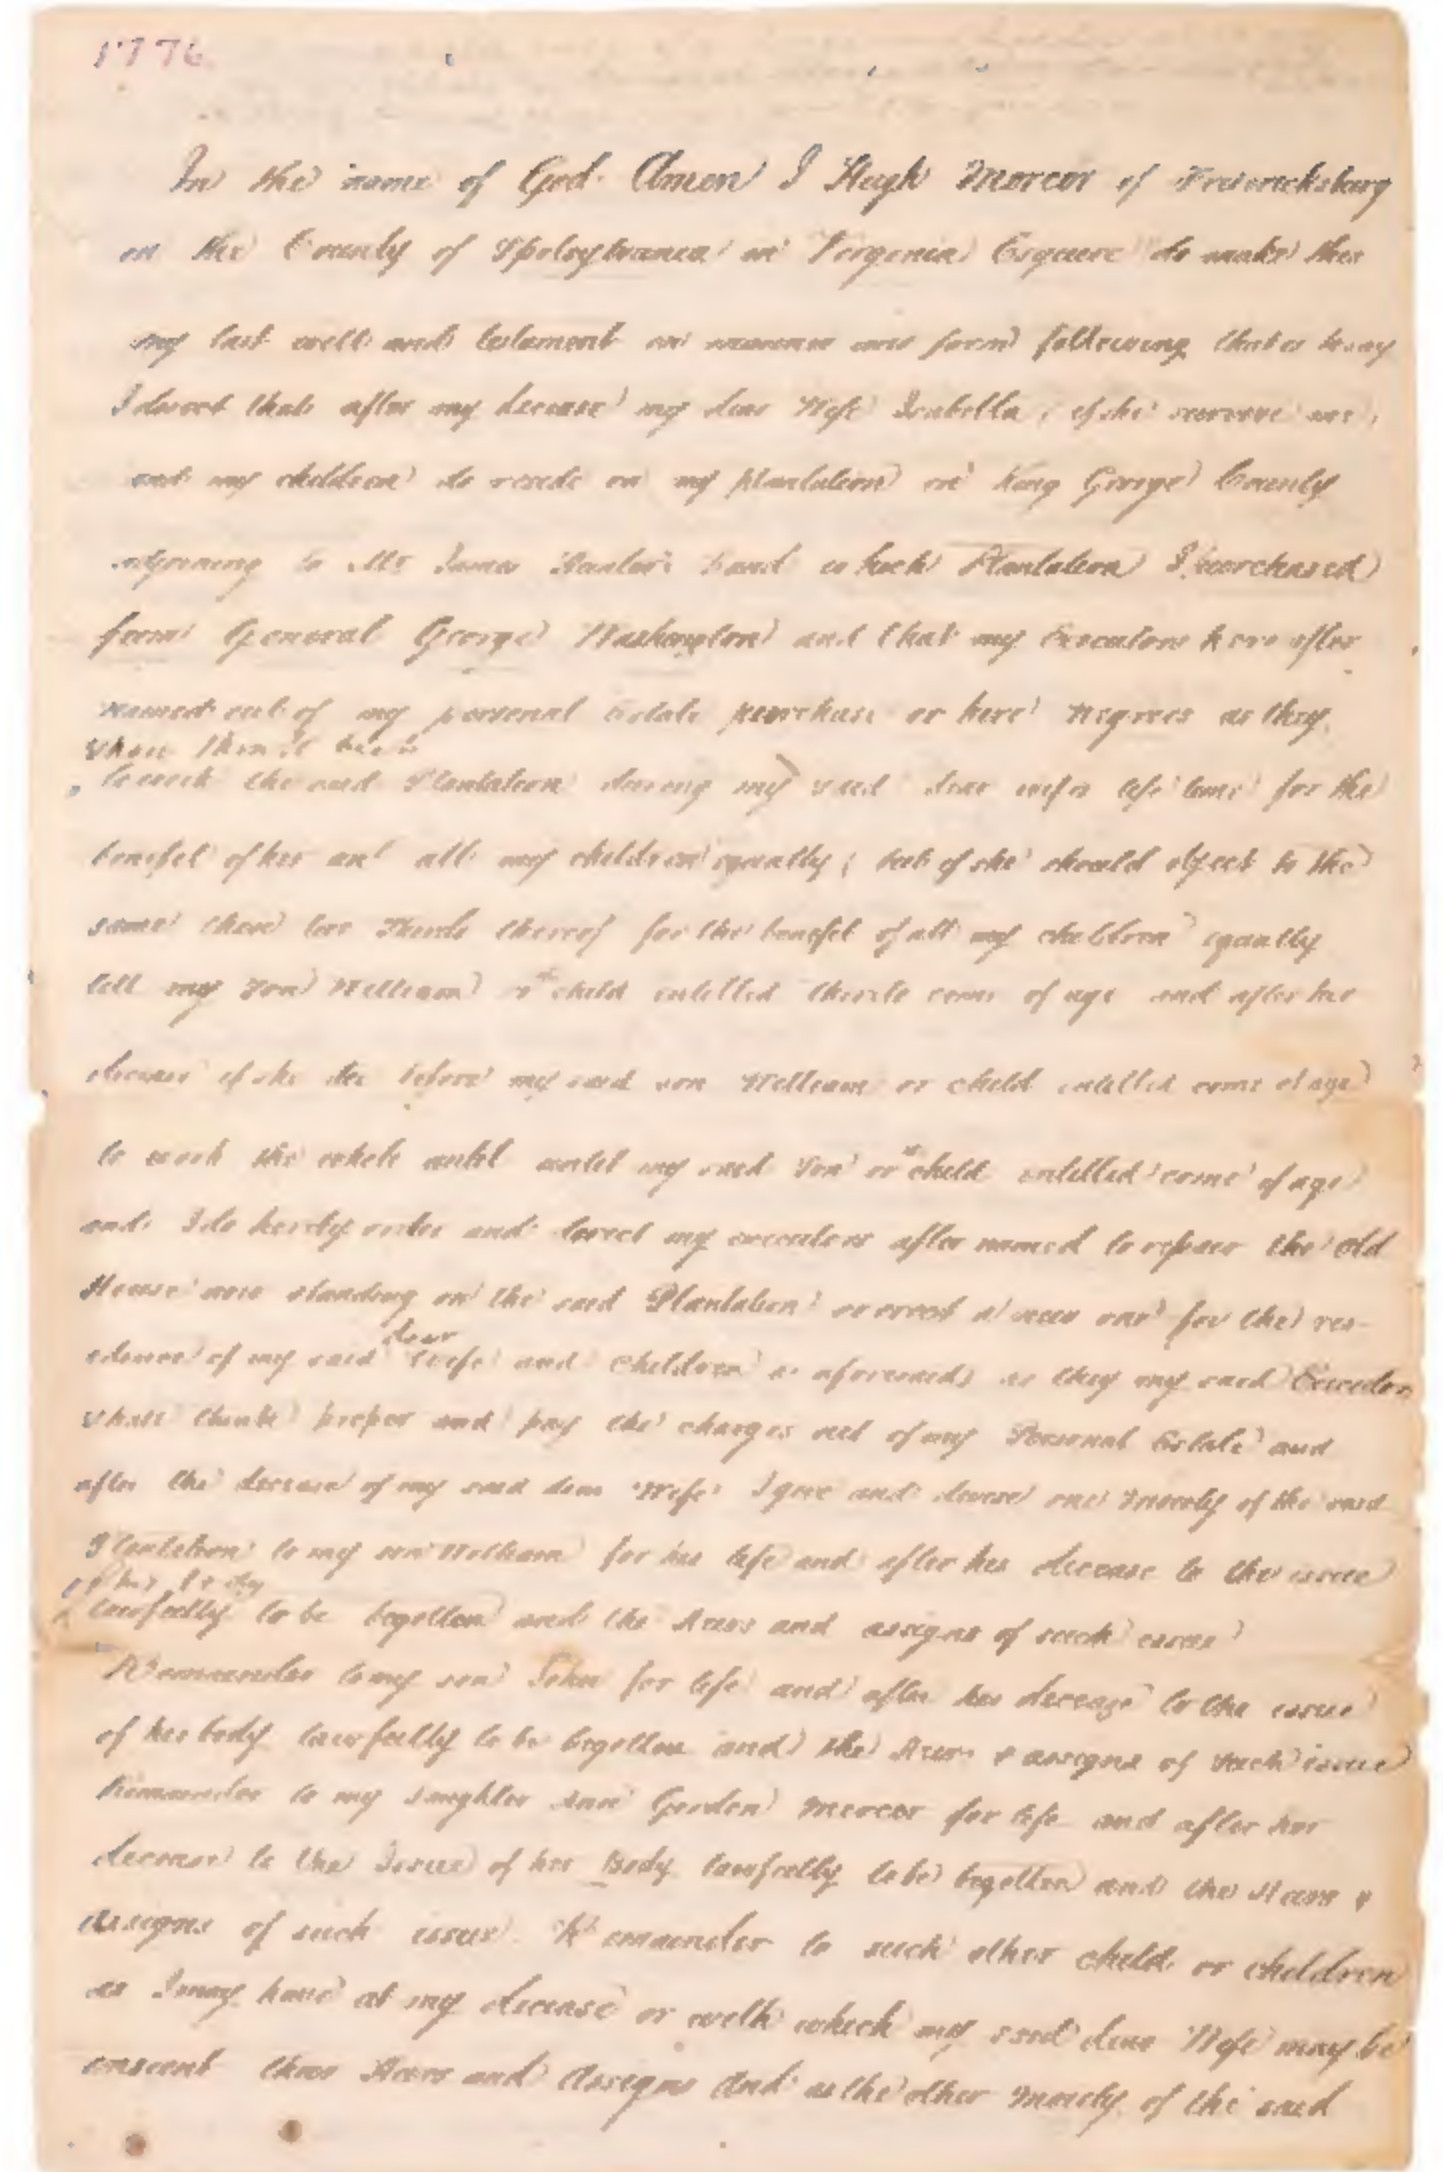 1776
In the name of God Amen I Hugh Mercer of Fredericksburg
in the County of Spotsylvania in Virginia Esquire do make this
my last will and testament in manner and form following that is to say
I direct that after my decease my dear Wife Isabella, if she survive me,
and my children do reside on my plantation in King George County
adjoining to Mr James Hunter's Land which Plantation I purchased
from General George Washington and that my Executors hereafter
named out of my personal Estate purchase or hire Negroes as they
shall think best
to work the said Plantation during my said dear wifes life time for the
benefit of her and all my children equally; but if she should object to the
same then two Thirds thereof for the benefit of all my children equally
till my Son William or child intitled thereto come of age and after her
decease if she die before my said son William or child intitled come of age
to work the whole until until my said Son or child intitled come of age
and I do hereby order and direct my executors after named to repair the Old
House now standing on the said Plantation or erect a new one for the res-
dear
idence of my said Wife and Children as aforesaid, as they my said Executors
shall think proper and pay the charges out of my Personal Estate and
after the decease of my said dear Wife I give and devise one Moiety of the said
Plantation to my son William for his life and after his decease to the issue
of his body
lawfully to be begotten and the Heirs and assigns of such issue
Remainder to my son John for life and after his decease to the issue
of his body lawfully to be begotten and the Heirs & assigns of such issue
Remainder to my daughter Ann Gordon Mercer for life and after her
decease to the Issue of her Body lawfully to be begotten and the Heirs &
assigns of such issue. Remainder to such other child or children
as I may have at my decease or with which my said dear Wife may be
ensient their Heirs and Assigns And as the other Moiety of the said